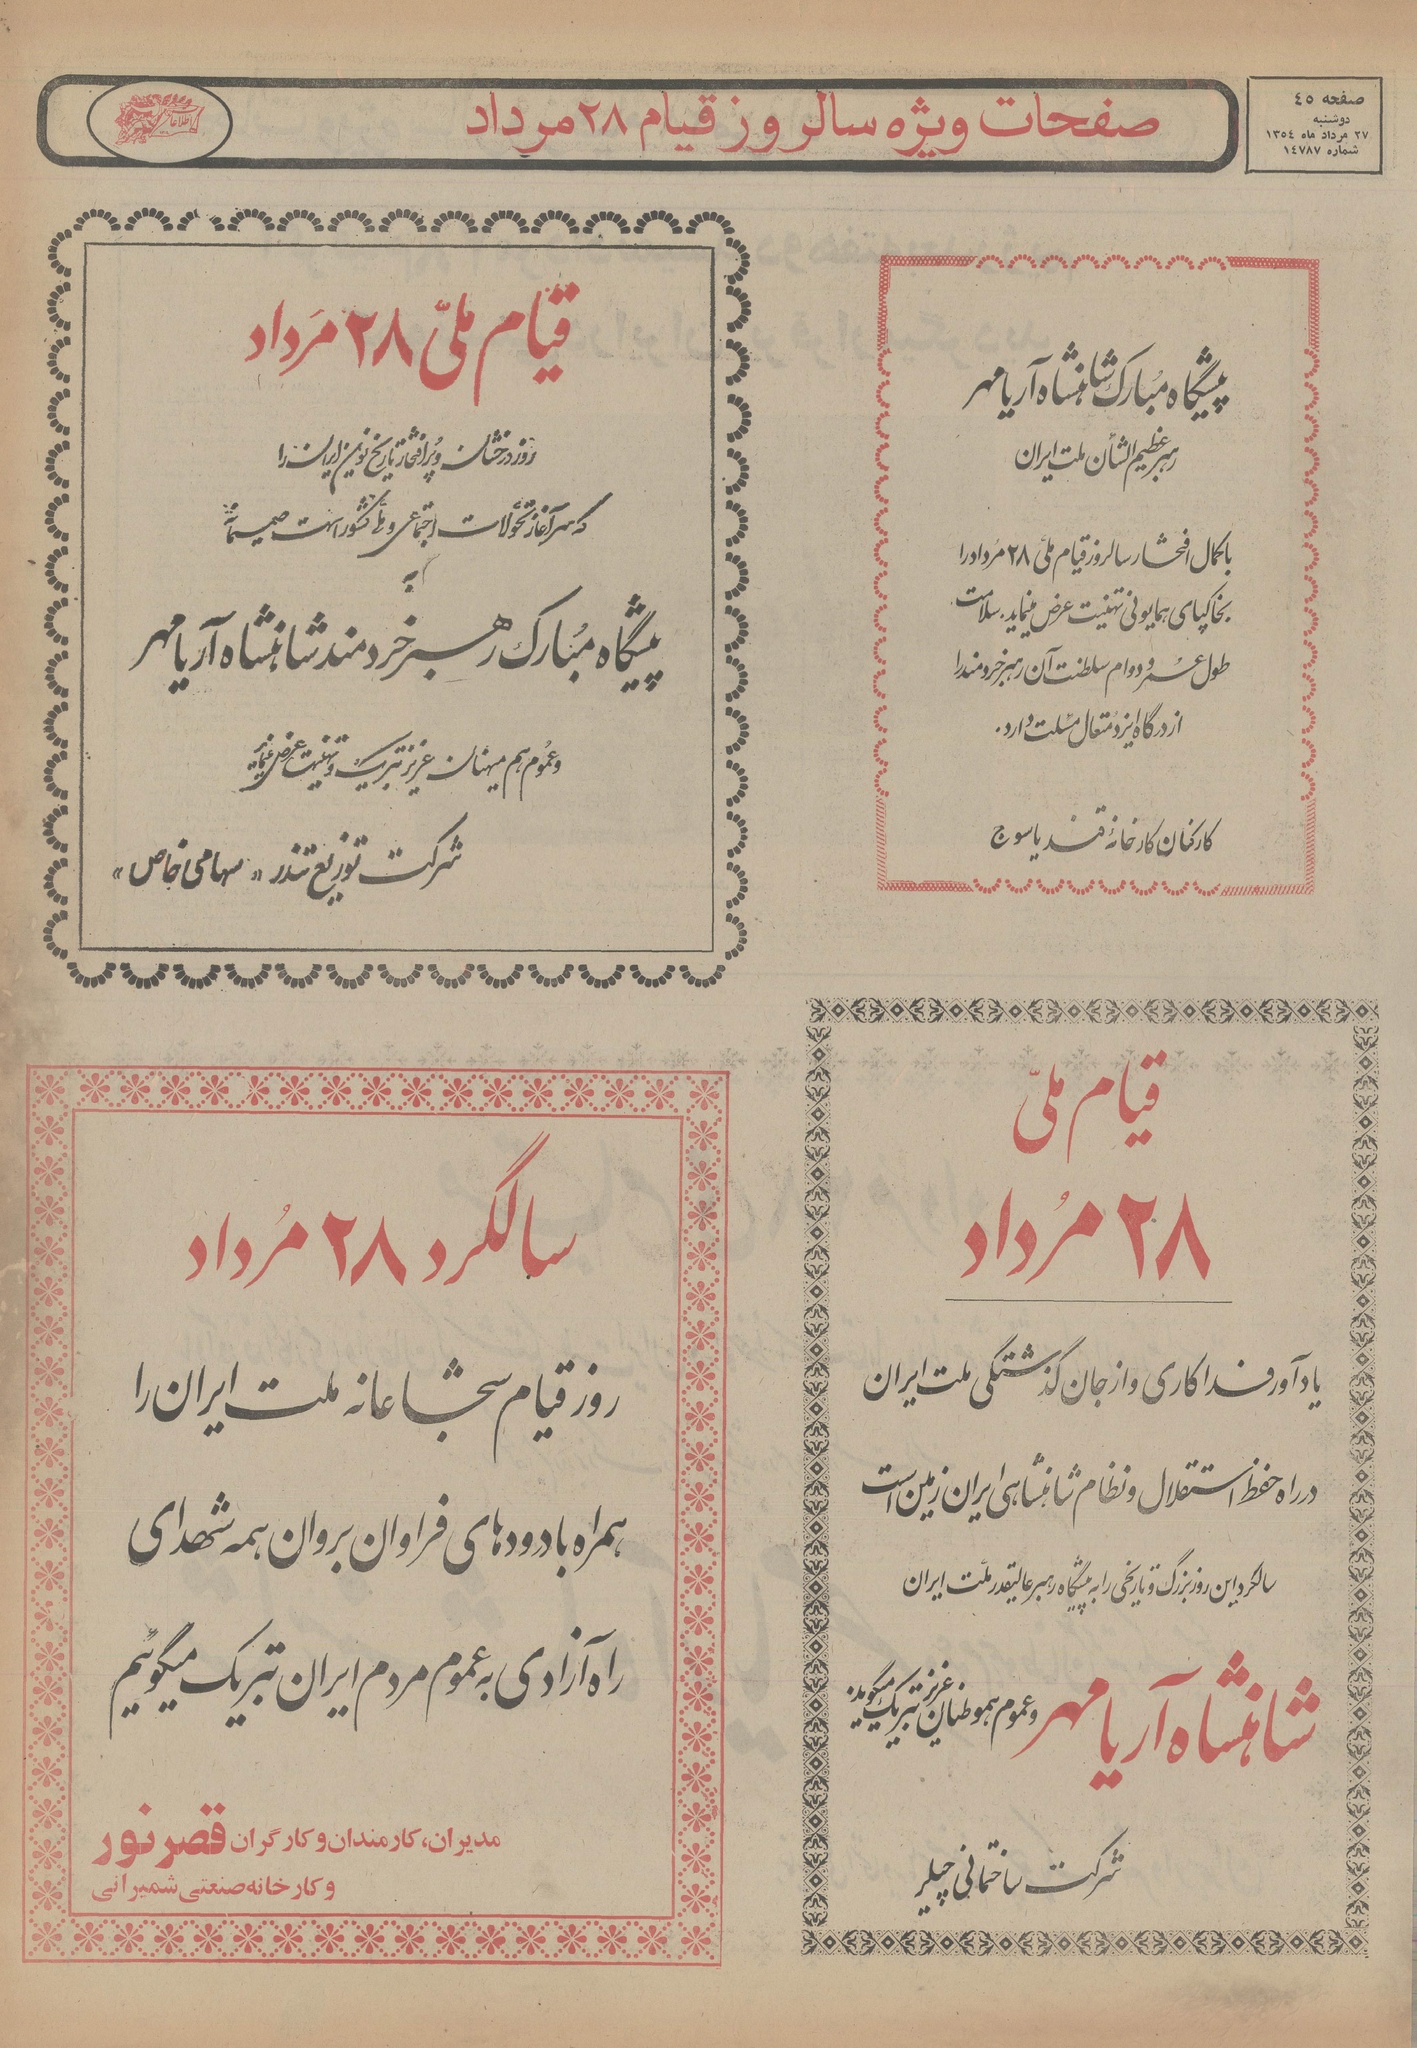 صفحه ٤٥
دوشنبه
٢٧ مرداد ماه ١٣٥٤
شماره ١٤٧٨٧
صفحات ویژه سالروز قیام ۲۸ مرداد
اطلاعات
پیشگاه مبارک شاهنشاه آریامهر
رهبر عظیم الشأن ملت ایران
با کمال افتخار سالروز قیام ملی ۲۸ مرداد را
بخاکپای همایونی تهنیت عرض مینماید. سلامت
طول عمر و دوام سلطنت آن رهبر خردمند را
از درگاه ایزد متعال مسئلت دارد.
کارکنان کارخانه قند یاسوج
قیام ملّی ۲۸ مرداد
روز درخشان و پرافتخار تاریخ نوین ایران را
که سرآغاز تحولات اجتماعی و ملی کشور است صمیمانه
به
پیشگاه مبارک رهبر خردمند شاهنشاه آریامهر
و عموم هم میهنان عزیز تبریک و تهنیت عرض مینماید
شرکت توزیع تندر «سهامی خاص»
قیام ملّی
۲۸ مُرداد
یادآور فداکاری و از جان گذشتگی ملت ایران
در راه حفظ استقلال و نظام شاهنشاهی ایران زمین است
سالگرد این روز بزرگ و تاریخی را به پیشگاه رهبر عالیقدر ملت ایران
شاهنشاه آریامهر و عموم هموطنان عزیز تبریک میگوید.
شرکت ساختمانی چیلر
سالگرد ۲۸ مُرداد
روز قیام شجاعانه ملت ایران را
همراه با درودهای فراوان بروان همه شهدای
راه آزادی به عموم مردم ایران تبریک میگوئیم
مدیران، کارمندان و کارگران قصر نور
و کارخانه صنعتی شمیرانی